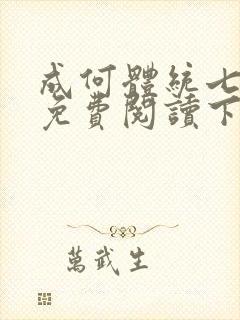 成何體統七
免費閱讀下
萬武生